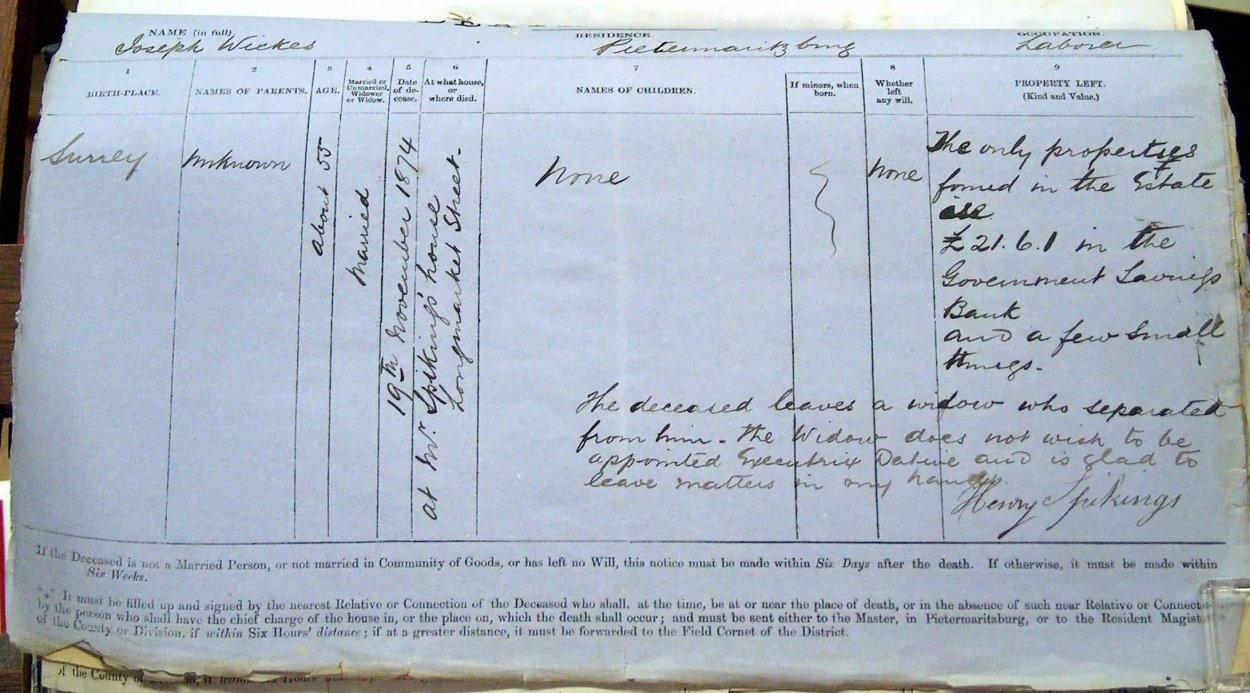 NAME (in full) RESIDENCE. OCCUPATION.
Joseph Wickes Pietermaritzburg Laborer
1 2 3 4 5 6 7 8 9
BIRTH-PLACE. NAMES OF PARENTS. AGE. Married or Unmarried, Widower or Widow. Date of decease. At what house, or where died. NAMES OF CHILDREN. If minors, when born. Whether left any will. PROPERTY LEFT. (Kind and Value.)
Surrey
Unknown
about 55
Married
19th November 1874
at Mr. Spiking's house
Longmarket Street.
None
None
The only properties
fomed in the Estate
are
£21.6.1 in the
Government Savings
Bank
and a few small
things.
The deceased leaves a widow who separated
from him. The Widow does not wish to be
appointed Executrix Dative and is glad to
leave matters in my hands.
Henry Spikings
If the Deceased is not a Married Person, or not married in Community of Goods, or has left no Will, this notice must be made within Six Days after the death. If otherwise, it must be made within
Six Weeks.
*** It must be filled up and signed by the nearest Relative or Connection of the Deceased who shall, at the time, be at or near the place of death, or in the absence of such near Relative or Connect
by the person who shall have the chief charge of the house in, or the place on, which the death shall occur; and must be sent either to the Master, in Pietermaritzburg, or to the Resident Magist
of the County or Division, if within Six Hours' distance; if at a greater distance, it must be forwarded to the Field Cornet of the District.
of the County of